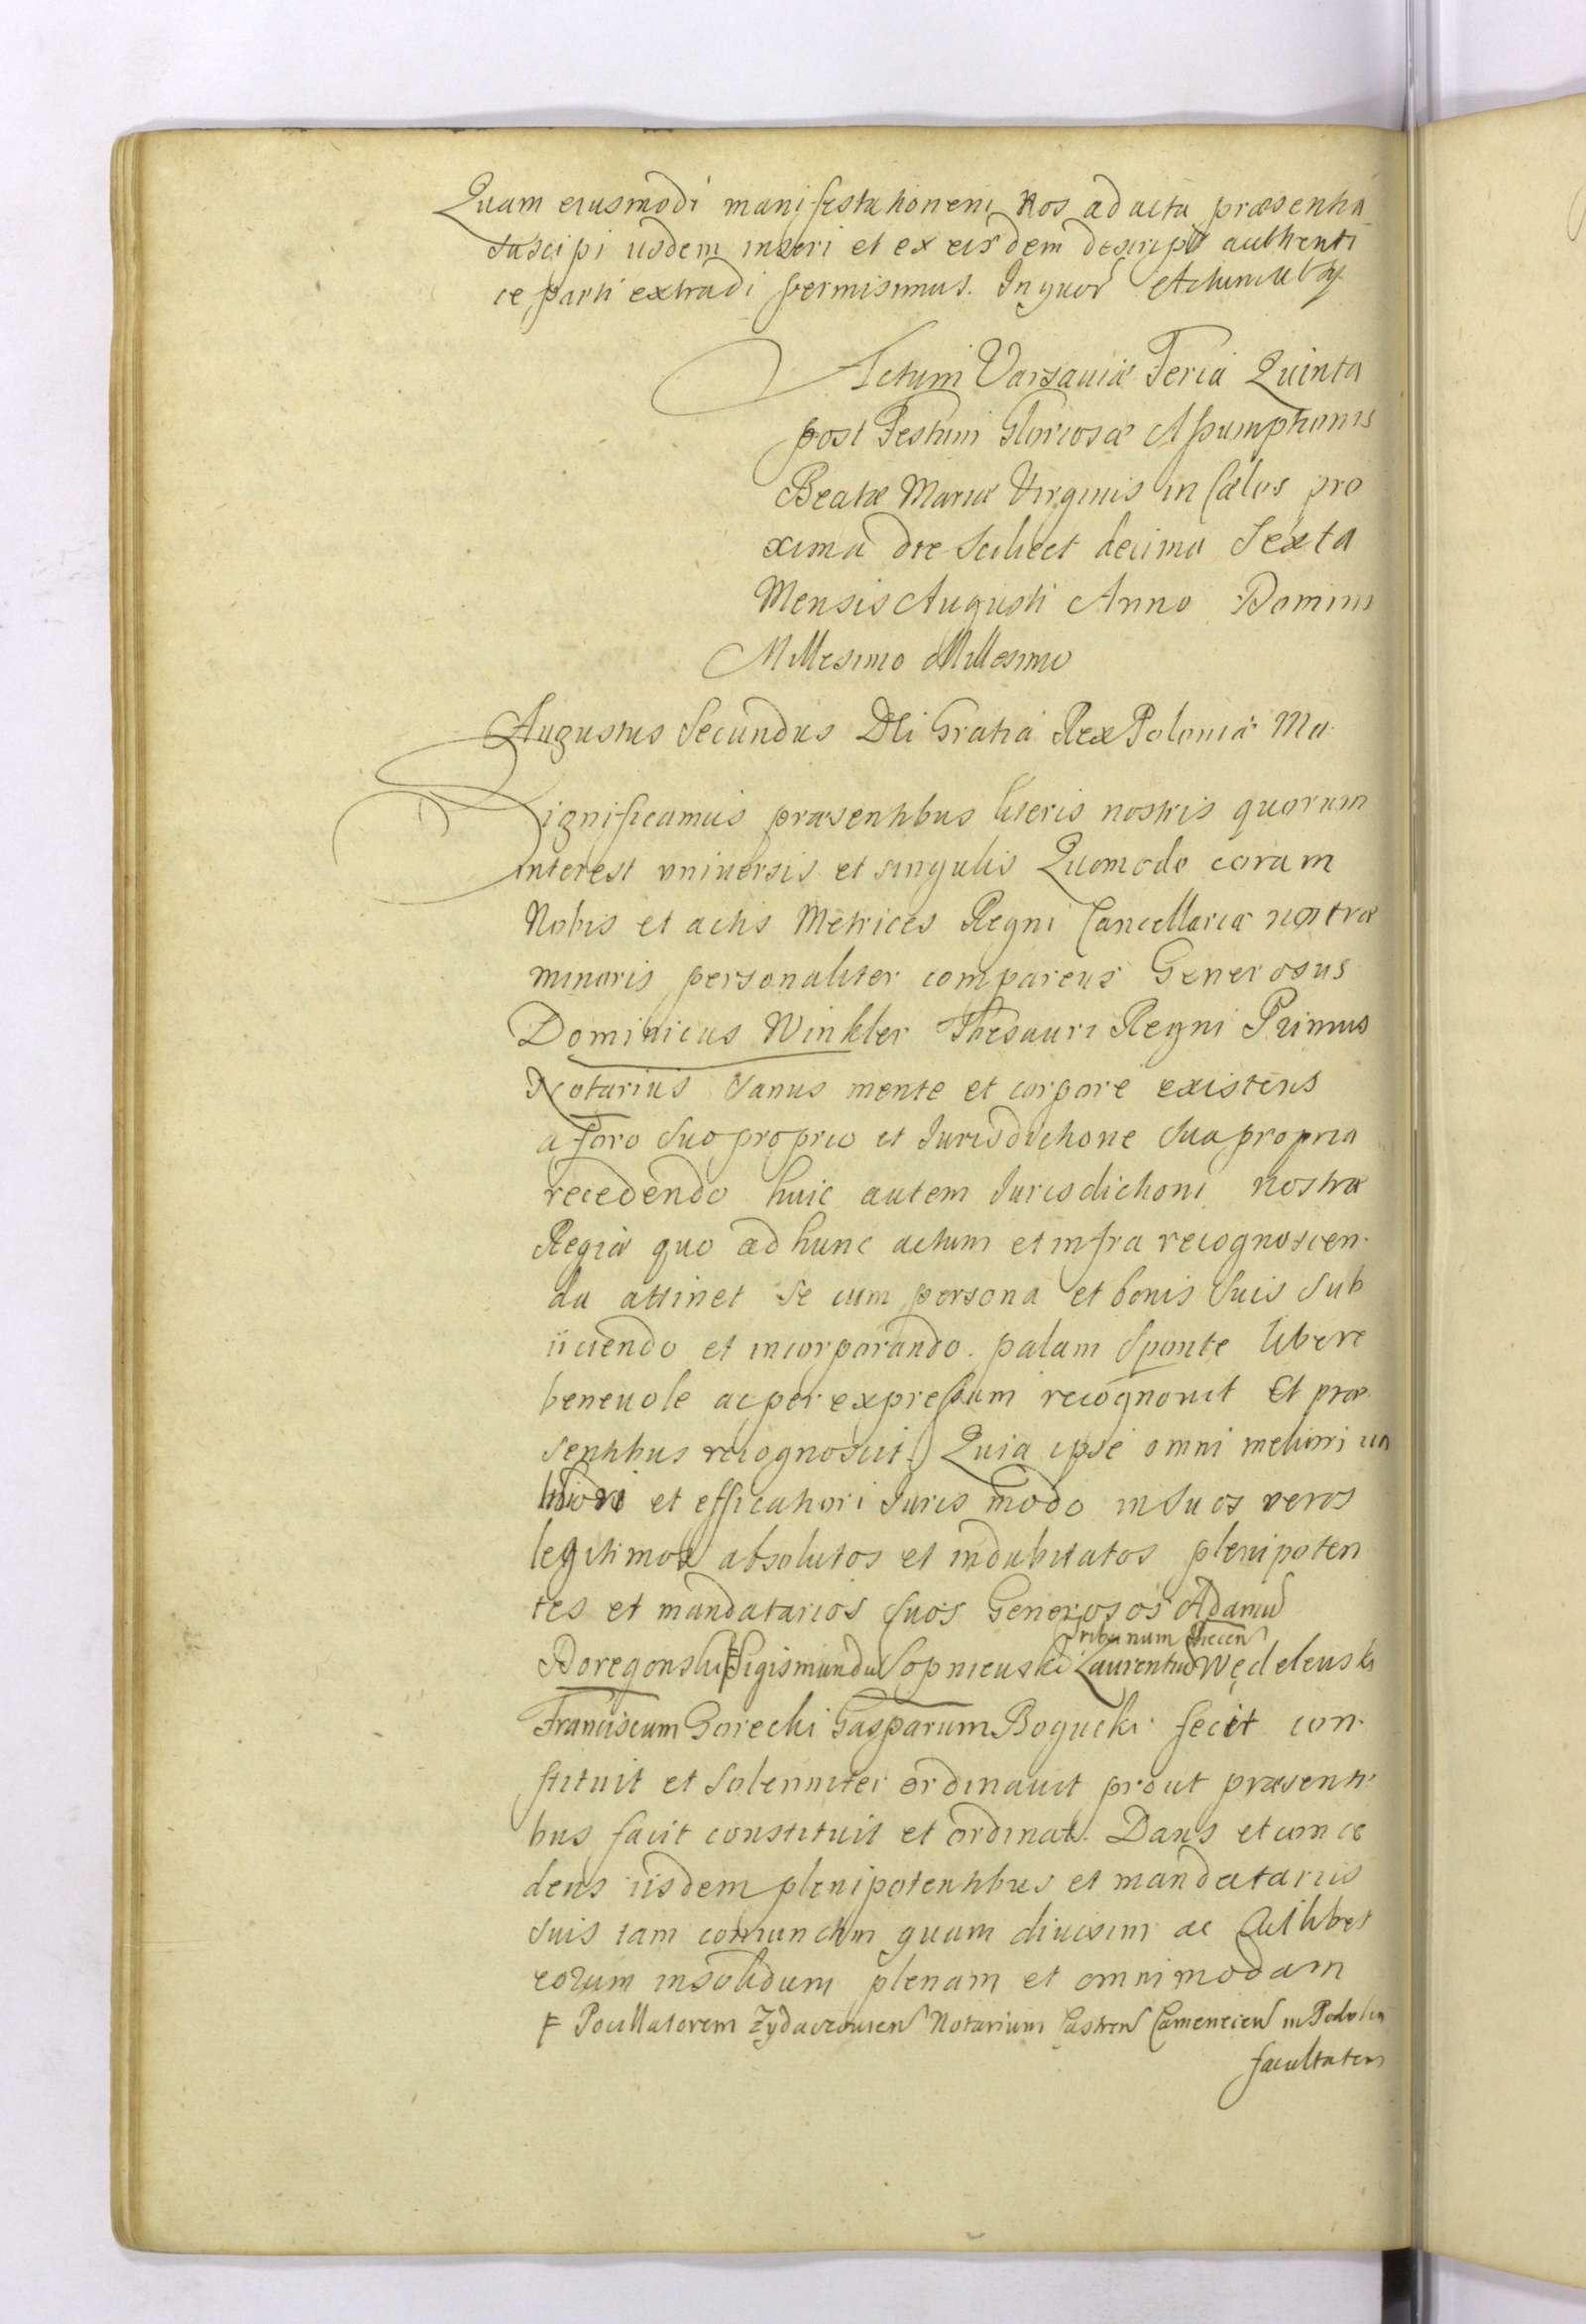 Quam eiusmodi manifestationem Nos ad acta præsentia
suscipi iisdem inseri et ex eisdem descripti authenti
ce parti extradi permisimus. In quor Actum ut
Actum Varsaviæ Feria Quinta
post Festum Gloriosæ Assumptionis
Beatæ Mariæ Virginis in Cælos pro
xima die scilicet decima Sexta
Mensis Augusti Anno Domini
Millesimo Millesimo
Augustus Secundus DEi Gratia Rex Poloniæ Ma
Significamus præsentibus literis nostris quorum
interest universis et singulis Quomodo coram
Nobis et actis Metrices Regni Cancellariæ nostræ
minoris personaliter comparens Generosus
Dominicus Winkler Thesauri Regni Primus
Notarius sanus mente et corpore existens
a foro suo proprio et Jurisdictione sua propria
recedendo huic autem Jurisdictioni nostræ
Regiæ quo ad hunc actum et infra recognoscen
da attinet se cum persona et bonis suis sub
iiciendo et incorporando. palam sponte libere
benevole ac per expressum recognovit Et præ
sentibus recognoscit. Quia ipse omni meliori va
lidiori et efficatiori Juris modo in suos veros
legitimos absolutos et indubitatos plenipoten
tes et mandatarios suos Generosos Adamum
Tribunum
Boregonski Sigismundum Sopnicuski Laurentium Wędelenski
Franciscum Gorecki Gasparum Bogucki fecit con
stituit et solenniter ordinavit prout præsenti
bus facit constituit et ordinat. Dans et conce
dens iisdem plenipotentibus et mandatariis
suis tam coniunctim quam divisim ac cuilibet
eorum insolidum plenam et omnimodam
F Pocillatorem Zydaczovien Notarium Castren Camenecien in Podolia
facultatem